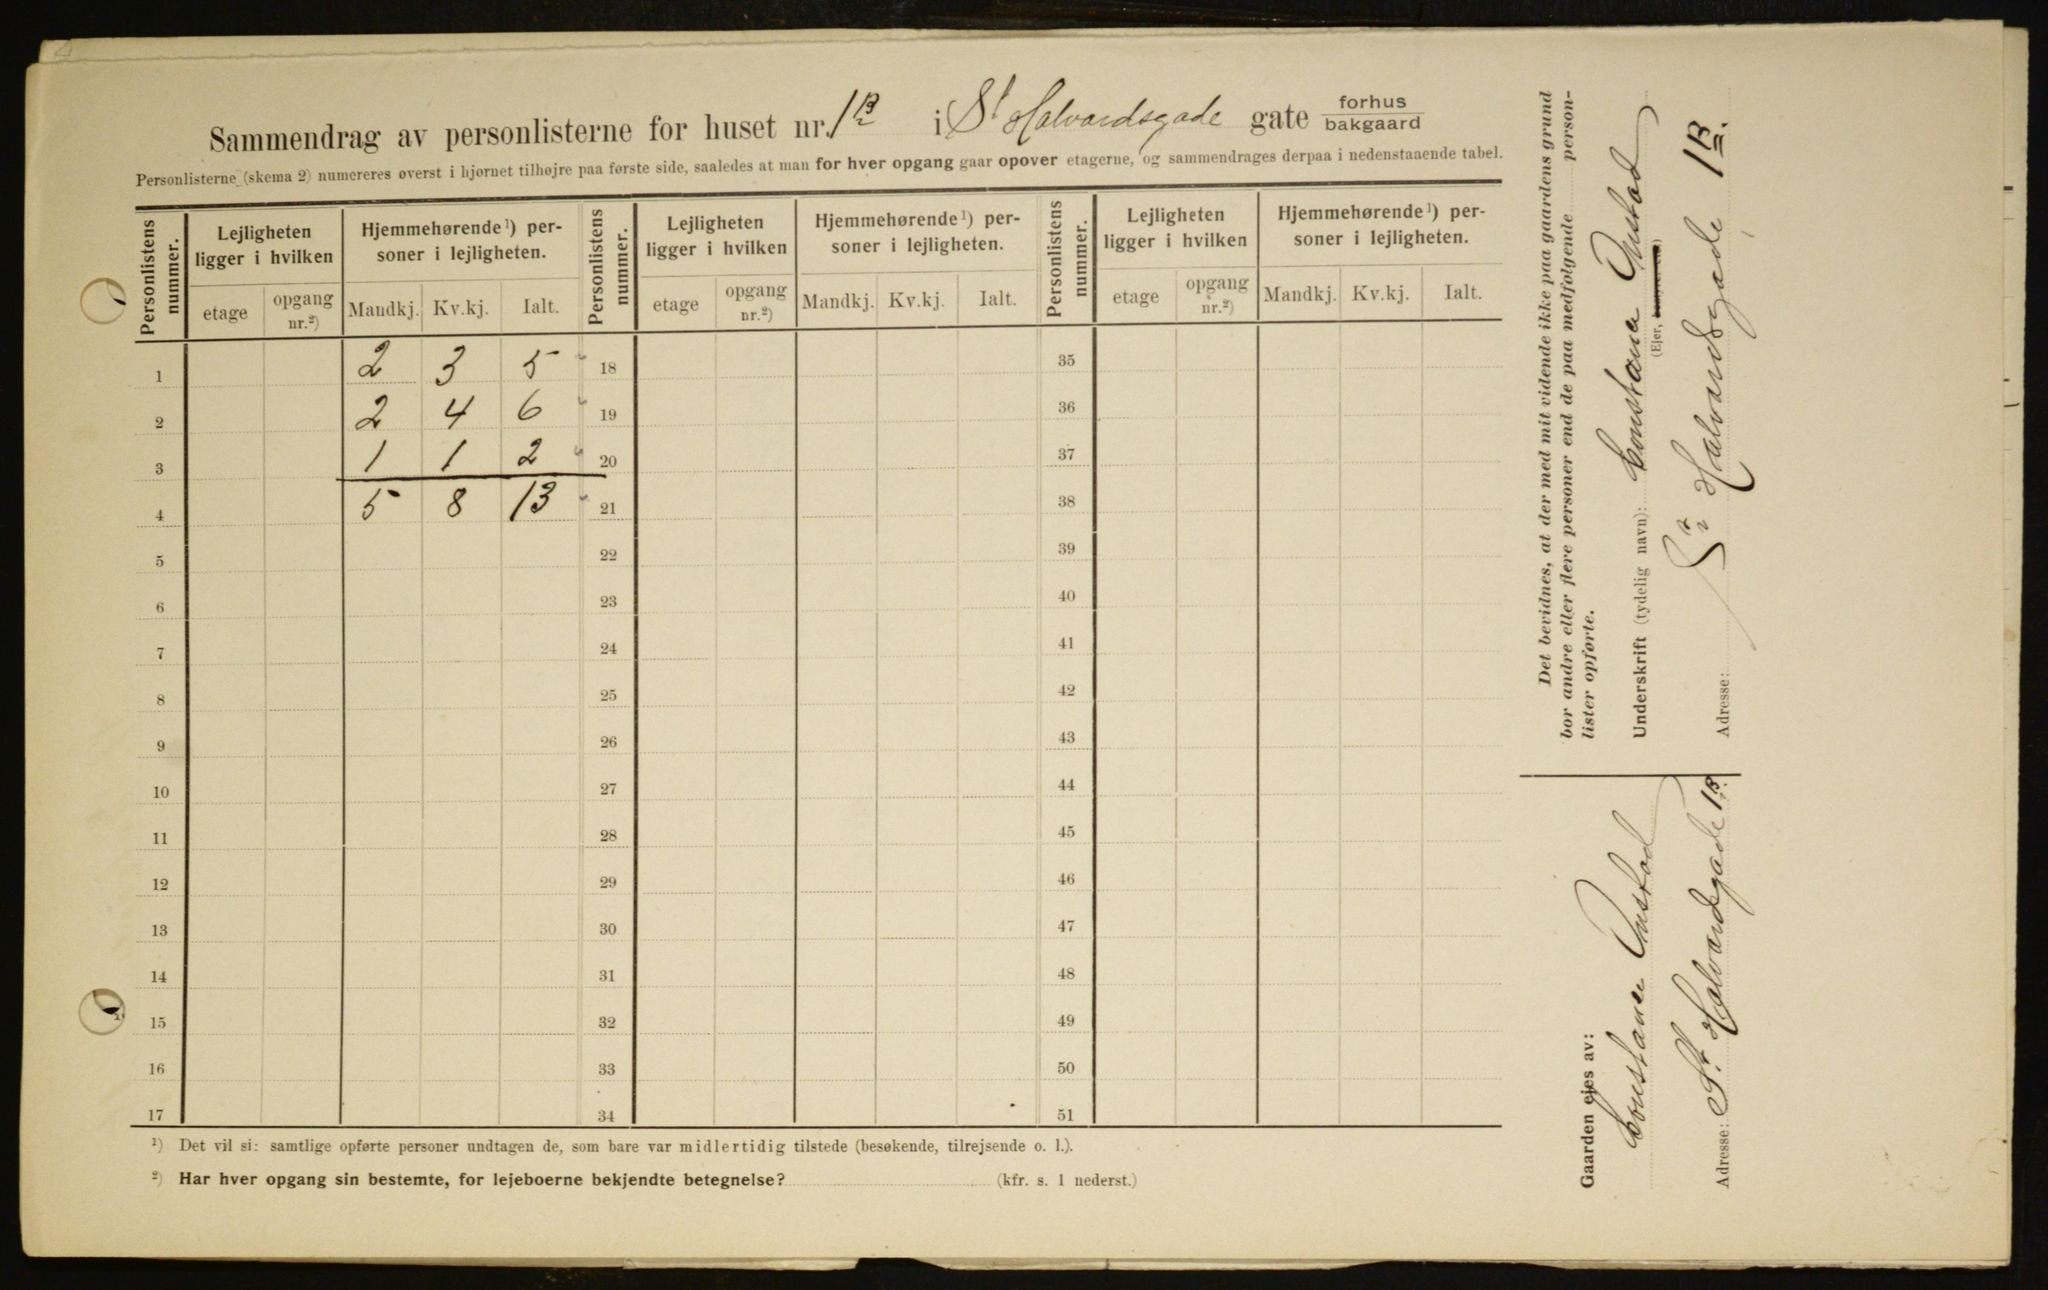 Sammendrag av personlisterne for huset nr. 1 B i St Halvardsgade gate forhus bakgaard
Personlisterne (skema 2) numereres øverst i hjørnet tilhøjre paa første side, saaledes at man for hver opgang gaar opover etagerne, og sammendrages derpaa i nedenstaaende tabel.
Personlistens nummer. Lejligheten ligger i hvilken Hjemmehørende ¹) personer i lejligheten. Personlistens nummer. Lejligheten ligger i hvilken Hjemmehørende ¹) personer i lejligheten. Personlistens nummer. Lejligheten ligger i hvilken Hjemmehørende ¹) personer i lejligheten.
etage opgang nr.²) Mandkj. Kv.kj. Ialt. etage opgang nr.²) Mandkj. Kv.kj. Ialt. etage opgang nr.²) Mandkj. Kv.kj. Ialt.
1 2 3 5 18 35
2 2 4 6 19 36
3 1 1 2 20 37
4 5 8 13 21 38
5 22 39
6 23 40
7 24 41
8 25 42
9 26 43
10 27 44
11 28 45
12 29 46
13 30 47
14 31 48
15 32 49
16 33 50
17 34 51
¹) Det vil si: samtlige opførte personer undtagen de, som bare var midlertidig tilstede (besøkende, tilrejsende o. l.).
²) Har hver opgang sin bestemte, for lejeboerne bekjendte betegnelse? (kfr. s. 1 nederst.)
Det bevidnes, at der med mit vidende ikke paa gaardens grund
bor andre eller flere personer end de paa medfølgende person-
lister opførte.
Underskrift (tydelig navn): Constance Onstad
(Ejer,
Adresse: St. Halvardsgade 1 B.
Gaarden ejes av:
Constance Onstad
Adresse: St. Halvardsgade 1 B.